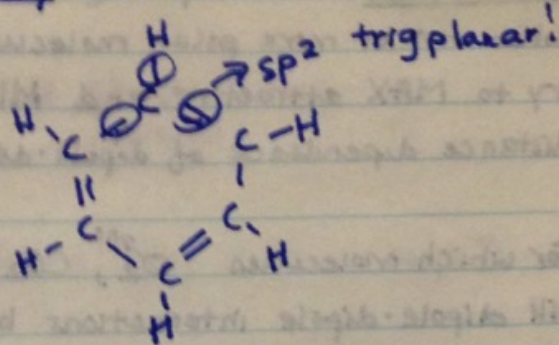 H
sp² trig planar!
H C C
C - H
C
C
H - C
H
C
H